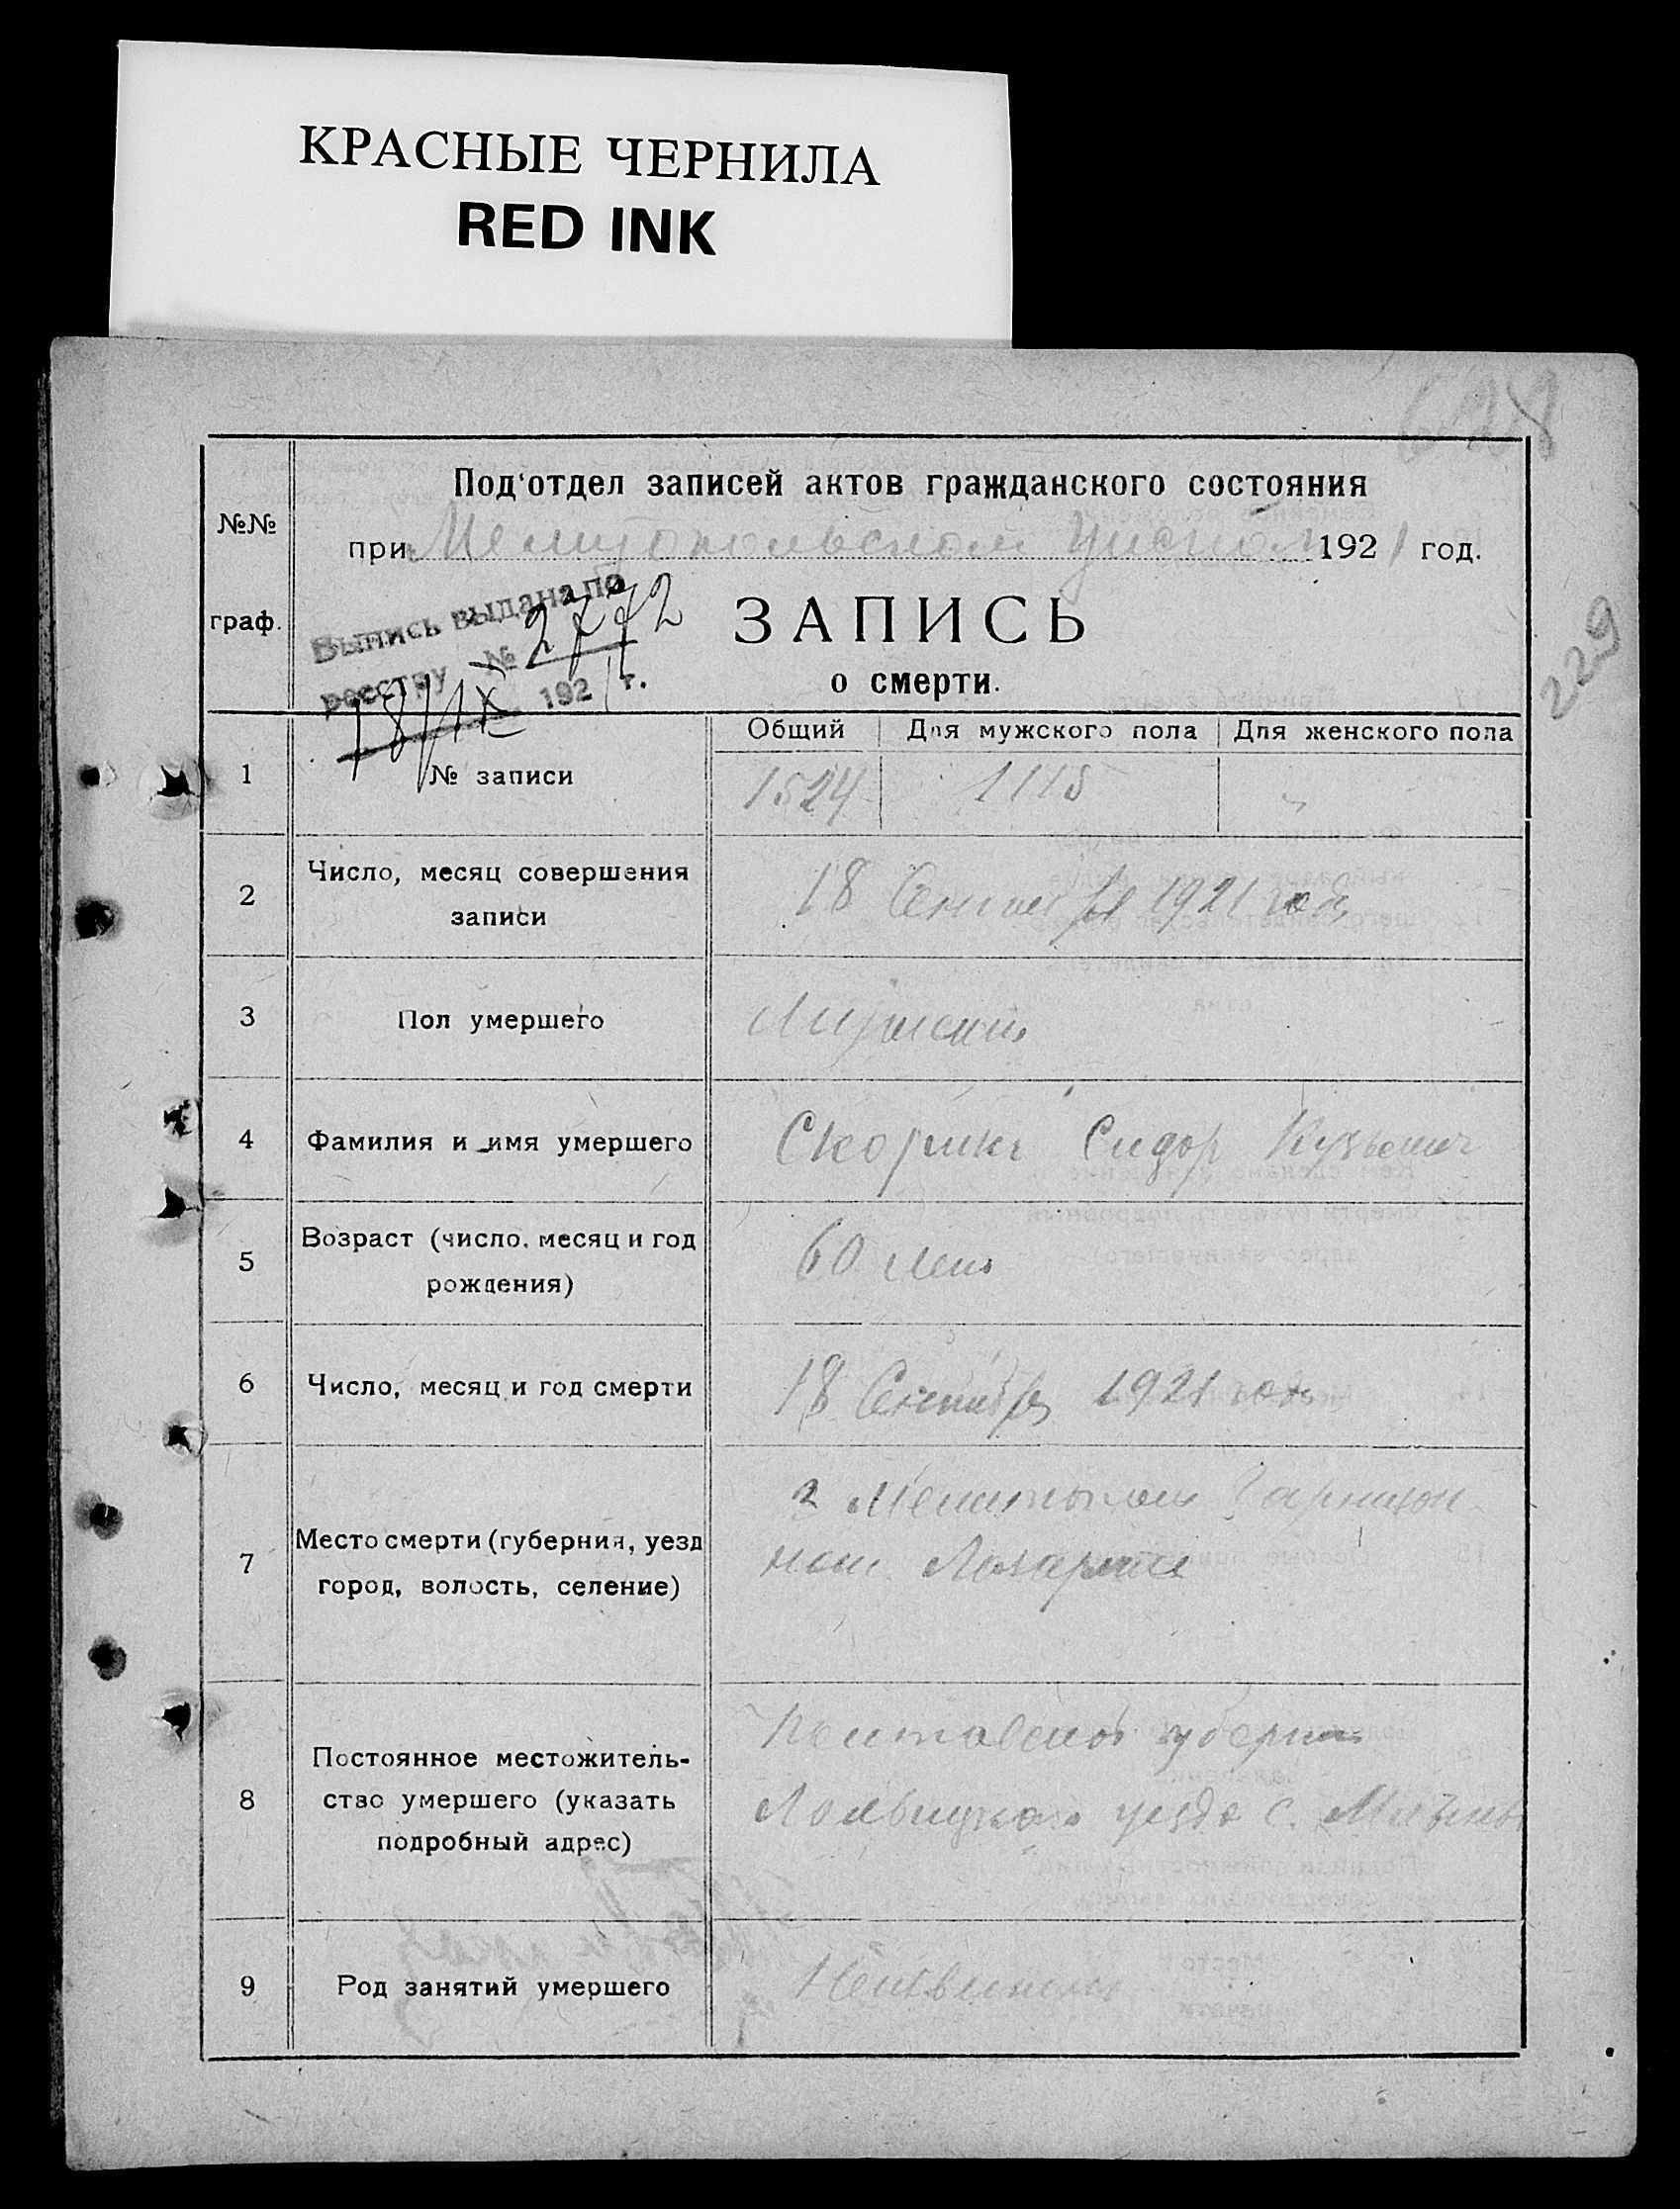 КРАСНЫЕ ЧЕРНИЛА
RED INK
628
Под'отдел записей актов гражданского состояния
№№
при Мелитопольском 1921 год.
229
граф.
Выпись выдана по
реестру № 2772
18/IX 1921 г.
ЗАПИСЬ
о смерти.
Общий Для мужского пола Для женского пола
1 № записи 1524 1115 "
2 Число, месяц совершения
записи
18 Сентября 1921 года
3 Пол умершего Мужской
4 Фамилия и имя умершего Скорик Сидор Кузьмич
5 Возраст (число, месяц и год
рождения)
60 лет
6 Число, месяц и год смерти 18 Сентября 1921 года
7 Место смерти (губерния, уезд
город, волость, селение)
г Мелитополь Гарнизон
ном Лазарете
8 Постоянное местожитель-
ство умершего (указать
подробный адрес)
Полтавской губернии
уезда с.
9 Род занятий умершего